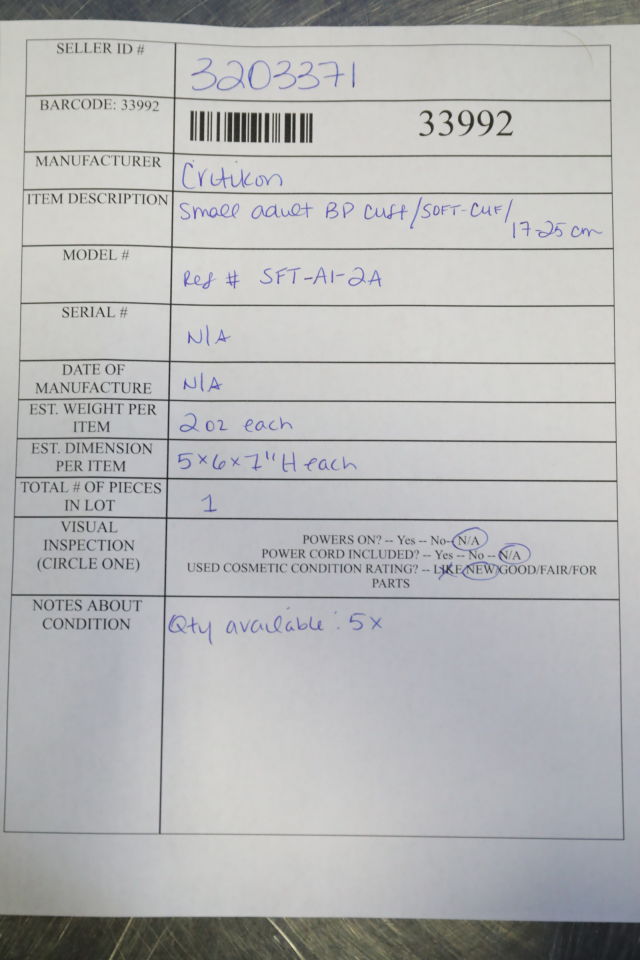 SELLER ID #
3203371
BARCODE: 33992
33992
MANUFACTURER
Critikon
ITEM DESCRIPTION
Small adult BP Cuff/SOFT-CUF/
17-25 cm
MODEL #
Ref # SFT-A1-2A
SERIAL #
N/A
DATE OF
MANUFACTURE
N/A
EST. WEIGHT PER
ITEM
2 oz each
EST. DIMENSION
PER ITEM
5x6x7"H each
TOTAL # OF PIECES
IN LOT
1
VISUAL
INSPECTION
(CIRCLE ONE)
POWERS ON? -- Yes -- No-- N/A
POWER CORD INCLUDED? -- Yes -- No -- N/A
USED COSMETIC CONDITION RATING? -- LIKE NEW/GOOD/FAIR/FOR
PARTS
NOTES ABOUT
CONDITION
Qty available: 5x